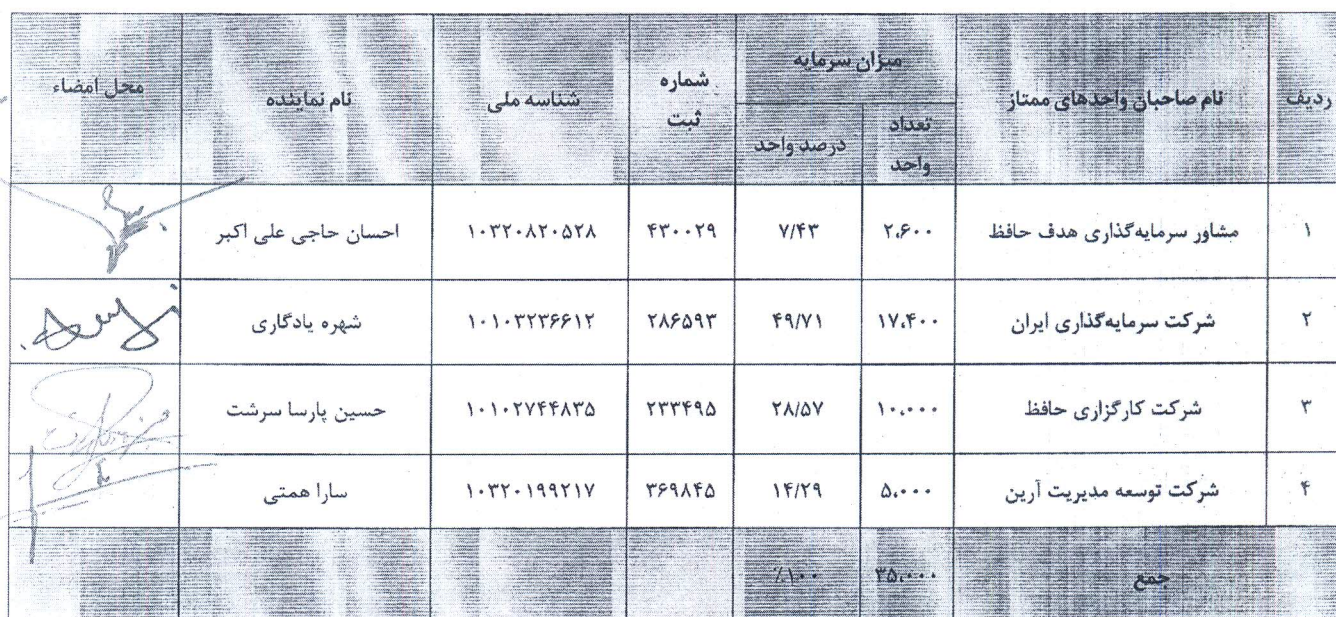 ردیف نام صاحبان واحدهای ممتاز میزان سرمایه شماره ثبت شناسه ملی نام نماینده محل امضاء
تعداد واحد درصد واحد
۱ مشاور سرمایه‌گذاری هدف حافظ ۲،۶۰۰ ۷/۴۳ ۴۳۰۰۲۹ ۱۰۳۲۰۸۲۰۵۲۸ احسان حاجی علی اکبر
۲ شرکت سرمایه‌گذاری ایران ۱۷،۴۰۰ ۴۹/۷۱ ۲۸۶۵۹۳ ۱۰۱۰۳۲۳۶۶۱۲ شهره یادگاری
۳ شرکت کارگزاری حافظ ۱۰،۰۰۰ ۲۸/۵۷ ۲۳۳۴۹۵ ۱۰۱۰۲۷۴۴۸۳۵ حسین پارسا سرشت
۴ شرکت توسعه مدیریت آرین ۵،۰۰۰ ۱۴/۲۹ ۳۶۹۸۴۵ ۱۰۳۲۰۱۹۹۲۱۷ سارا همتی
جمع ۳۵،۰۰۰ ٪۱۰۰